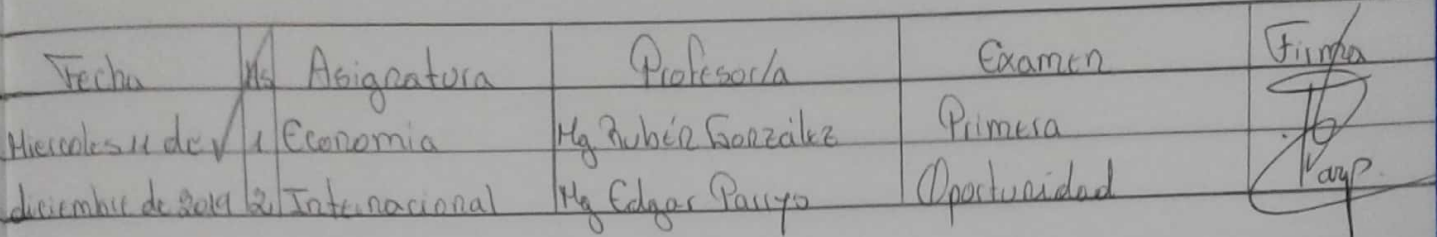 Fecha Hs Asignatura Profesor/a Examen Firma
Miercoles 11 de 1 Economia Mg Rubén González Primera
diciembre de 2019 2 Internacional Mg Edgar Parryo Oportunidad